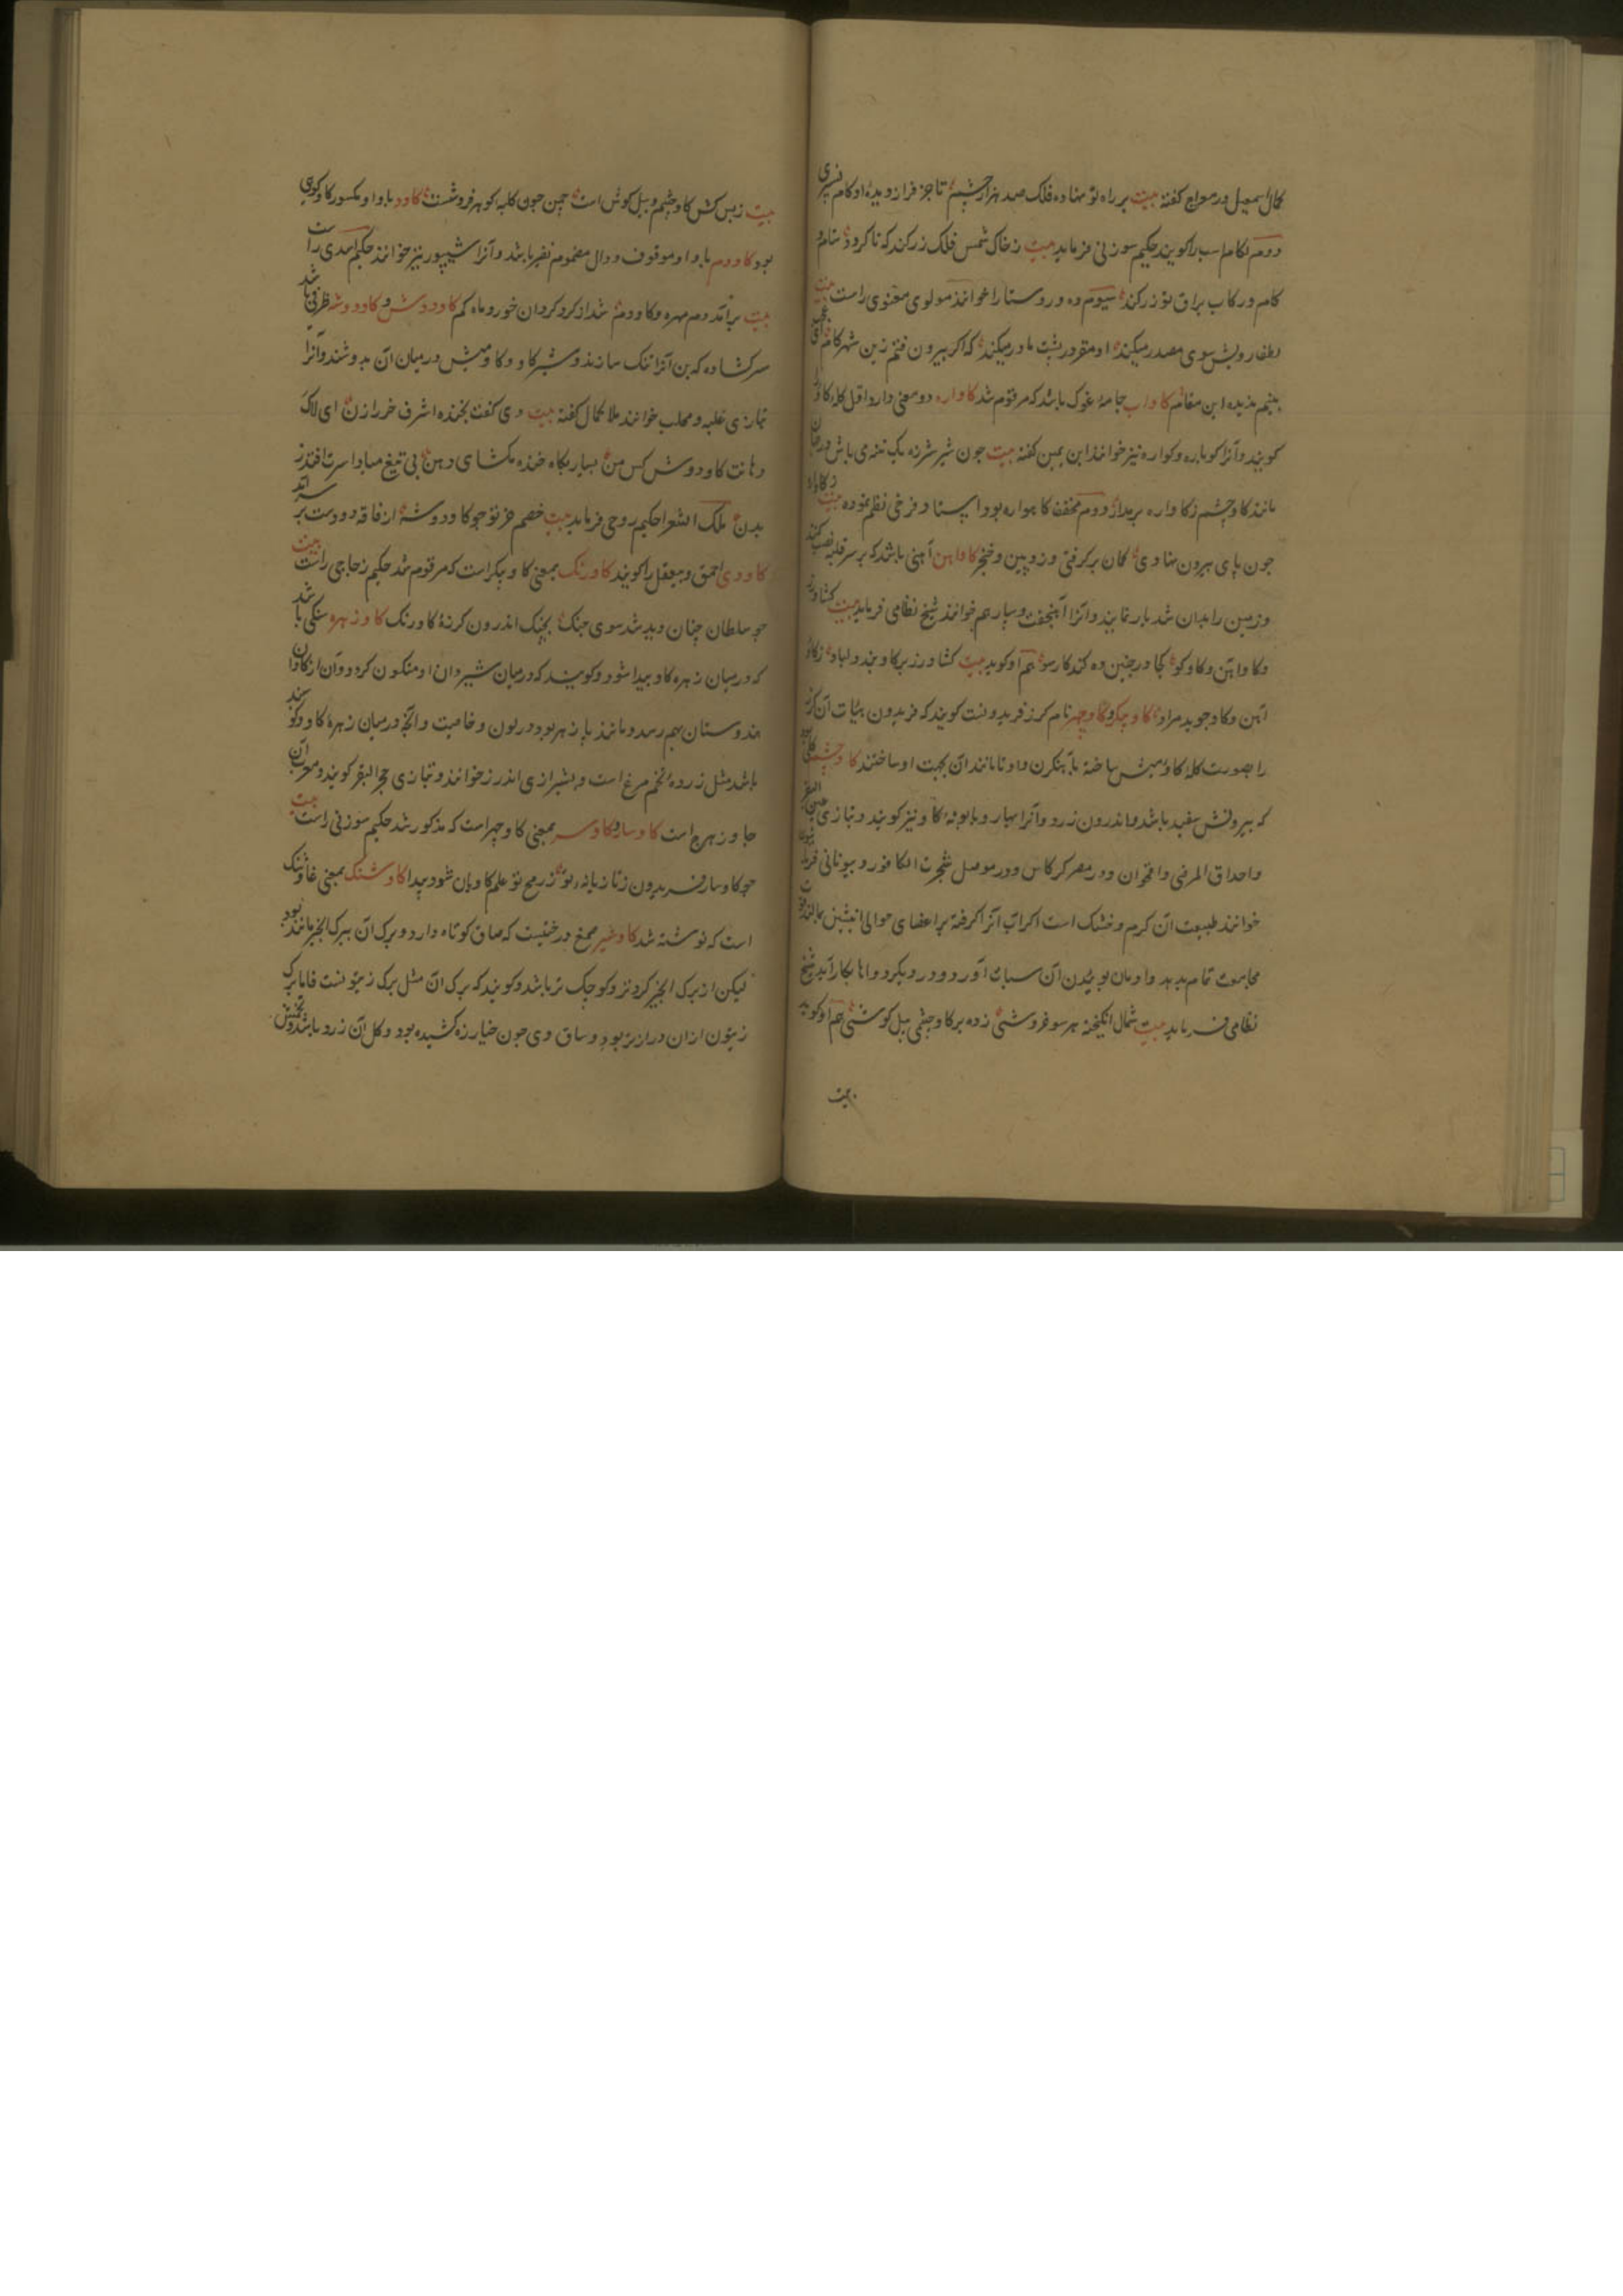 کمال اسمعیل در معراج کفته بیت بر راه تو نهاده فلک صد هزار چشم تا جز فراز دیده او کام نسپری
دوم لکام اسب را کویند حکیم سوزنی فرماید بیت زخاک شمس فلک زر کند که تا کردد ستام و
کام و رکاب براق تو زر کند سیوم ده و روستا را خوانند مولوی معنوی راست بیت
لطفا رویش سوی مصدر میکند او مقر در پشت مادر میکند که اکر بیرون فتم زین شهر کام ای عجب
بینم بدیده این مقام کاواب جامه غوک باشد که مرقوم شد کاواره دو معنی دارد اول کله کاو را
کویند و آنرا کوباره و کواره نیز خوانند ابن یمین کفته بیت چون شیر شرزه یک تنه می باش در جهان
مانند کاو چشم ز کاواره بر مدار دوم مخفف کاهواره بود استاد فرخی نظم نموده بیت ز کاواره
چون پای بیرون نهادی کمان بر کرفتی و زوپین و خنجر کاواهن آهنی باشد که بر سر قلبه نصب کنند
و زمین را بدان شدیار نمایند و آنرا آهنجفت و سپار هم خوانند شیخ نظامی فرماید بیت کشاورز
و کاو اهن و کاو کو کجا در چنین ده کند کار سو هم او کوید بیت کشاورز بر کاو بندد لباد ز کاو
آهن و کاو جوید مراد کاو پیکر و کاو چهر نام کرز فریدونست کویند که فریدون بهیات آن کرز
را بصورت کله کاومیش ساخته بآهنکرن داد تا مانند آن بجهت او ساختند کاو چشم کلی بود
که بیرونش سفید باشد و اندرون زرد و آنرا بهار و بابونه کاو نیز کویند و بتازی عین البقر
و احداق المرضی و اقحوان و در مصر کرکاس و در موصل شجرت الکافور و بیونانی
خوانند طبیعت آن کرم و خشک است اکر آب آنرا کرفته بر اعضای حوالی انثیین بمالند قوت
مجامعت تمام بدهد و ادمان بوئیدن آن سبات آورد و درد بکردد و اما بکار آید شیخ
نظامی فرماید بیت شمال انکیخته هر سو خروشی زده بر کاو چشمی پیل کوشی هم او کوید
بیت
بیت زبس کش کاو چشم و پیل کوش است چمن چون کلبه کوهر فروش است کاود با واو مکسور کاو کوهی
بود کاودم با واو موقوف و دال مضموم نفیر باشد و آنرا شیپور نیز خوانند حکیم اسدی راست
بیت برآمد دم مهره و کاودم شد از کرد کردان خور و ماه کم کاودوش و کاودوشه ظرفی باشد
سرکشاده که بن آنرا تنک سازند و شیر کاو و کاومیش در میان آن بدوشند و آنرا
بتازی علبه و محلب خوانند ملا کمال کفته بیت دی کفت بخنده اشرف خر را زن ای لاک
دهانت کاودوش کس من بسیار بکاه خنده مکشای دهن بی تیغ مبادا سرت افتد ز
بدن ملک الشعرا حکیم روحی فرماید بیت خصم خر تو چو کاودوشه از فاقه دو دست بر سر آمد
کاودی احمق و بیعقل را کویند کاورنک بمعنی کاو پیکر است که مرقوم شد حکیم زجاجی راست بیت
چو سلطان چنان دید شد سوی جنک بچنک اندرون کرزه کاورنک کاوزهره سنکی باشد
که در میان زهره کاو پیدا شود و کویند که در میان شیردان او متکون کردد و آن از کاوان
هندوستان بهم رسد و مانند پازهر بود در لون و خاصیت و آنچه در میان زهره کاو دکو شد
باشد مثل زرده تخم مرغ است و بشیرازی اندرز خوانند و بتازی حجر البقر کویند و معرب آن
جاوزهرج است کاوسار و کاوسر بمعنی کاو چهر است که مذکور شد حکیم سوزنی راست بیت
چو کاوسار فریدون ز تازیانه تو ز رمح تو علم کاویان شود پیدا کاوشنک بمعنی غاوشنک
است که نوشته شد کاوشیر صمغ درختیست که ساق کوتاه دارد و برک آن ببرک انجیر مانند بود
لیکن از برک انجیر کردتر و کوچک تر باشد و کویند که برک آن مثل برک زیتونست فاما برک
زیتون ازان درازتر بود و ساق وی چون خیارزه کشیده بود و کل آن زرد باشد و تخمش